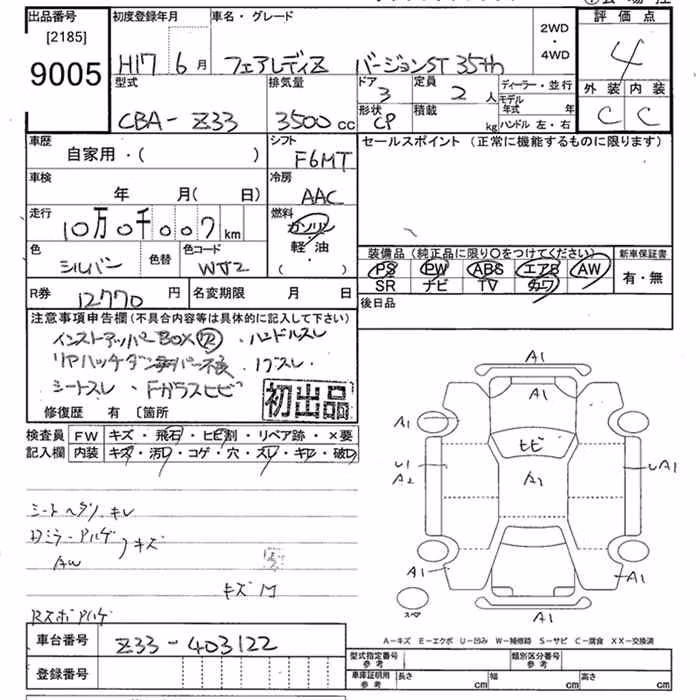 出品番号 初度登録年月 車名・グレード 2WD・4WD 評価点
[2185]
9005 H17 6月 フェアレディZ バージョンST 35th 4
型式 排気量 ドア 3 定員 2人 ディーラー・並行 外装 内装
CBA-Z33 3500cc 形状 CP 積載 kg モデル年式 年 C C
ハンドル 左・右
車歴 シフト セールスポイント (正常に機能するものに限ります)
自家用・( ) F6MT
車検 冷房
年 月( 日) AAC
走行 燃料
10万0千007km ガソリン
軽・油
・( )
色 シルバー 色替 色コード WV2
装備品(純正品に限り○をつけてください) 新車保証書
PS PW ABS エアB AW 有・無
SR ナビ TV カワ
R券 12770円 名変期限 月 日 後日品
注意事項申告欄(不具合内容等は具体的に記入して下さい)
インストアッパーBOXワレ・ハンドルスレ
リアハッチダンパー不良・ノブスレ・
シートスレ・Fガラスヒビ
初出品
修復歴 有 〔箇所
検査員 FW キズ・飛石・ヒビ割・リペア跡・×要
記入欄 内装 キズ・汚レ・コゲ・穴・スレ・キレ・破レ
A1
A1
A1
ヒビ
U1
A2
A1
UA1
A1
A1
A1
スペア
シートヘタリ、キレ
ドアミラーアルゲ
AW
キズ
キズM
RスポAルゲ
A-キズ E-エクボ U-凹み W-補修跡 S-サビ C-腐食 XX-交換済
車台番号 Z33-403122
登録番号
型式指定番号 参考 類別区分番号 参考
車庫証明用 参考 長さ cm 幅 cm 高さ cm